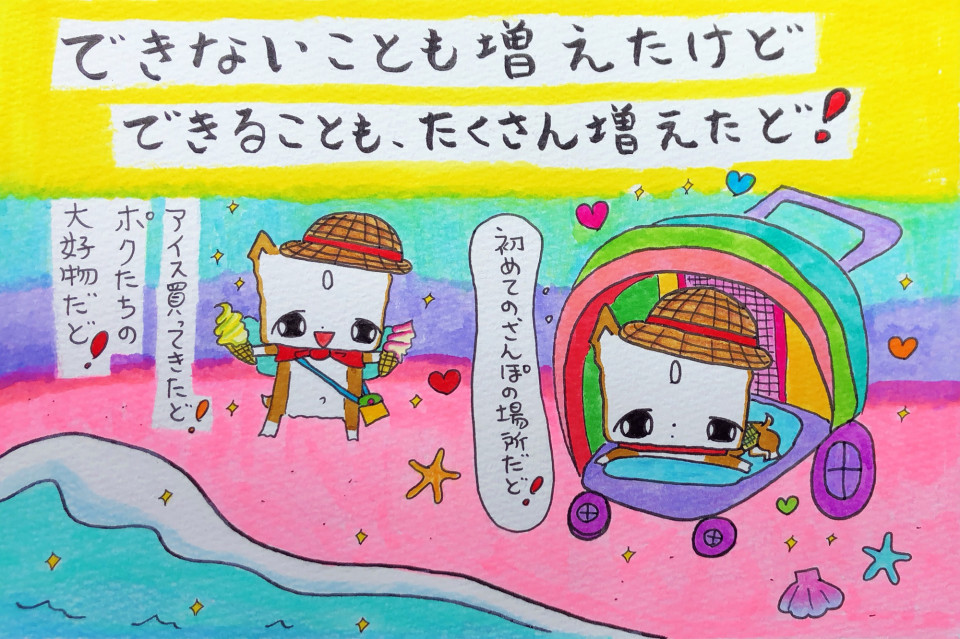 できないことも増えたけど
できることも、たくさん増えたど!
アイス買ってきたど!
ボクたちの
大好物だど!
初めてのさんぽの場所だど!